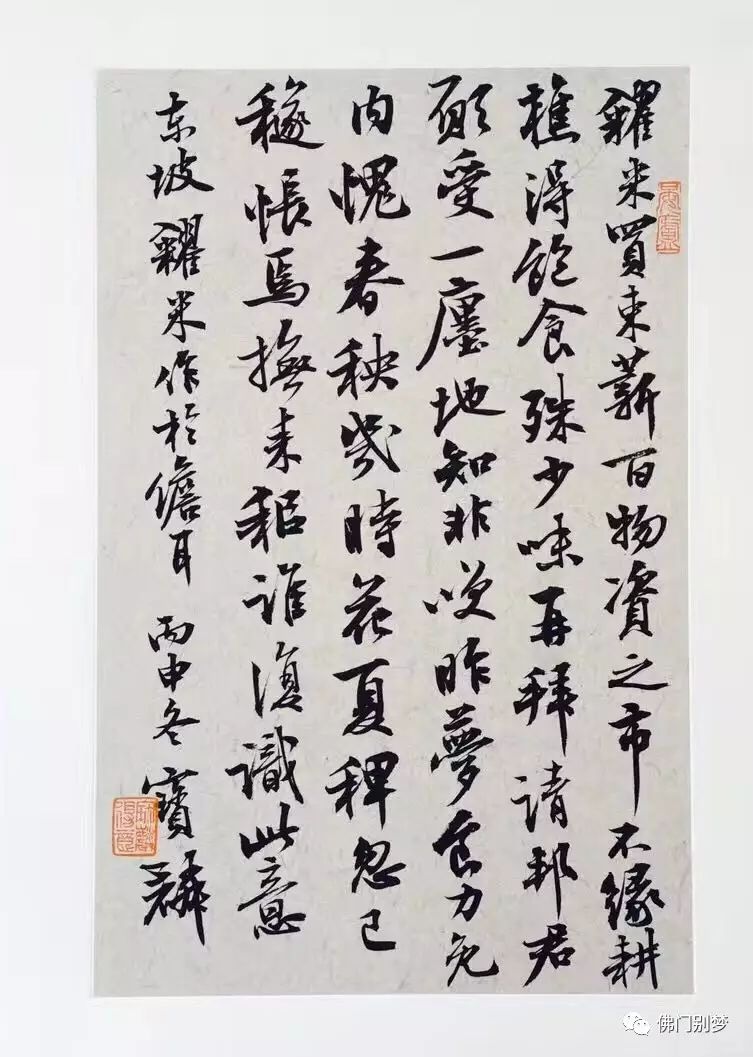 糴米買束薪百物資之市不緣耕
樵得飽食殊少味再拜請邦君
願受一廛地知非咲昨夢食力免
内愧春秧幾時花夏稗忽已
穟悵焉撫耒耜誰復識此意
東坡糴米作於儋耳 丙申冬 寶
佛门别梦